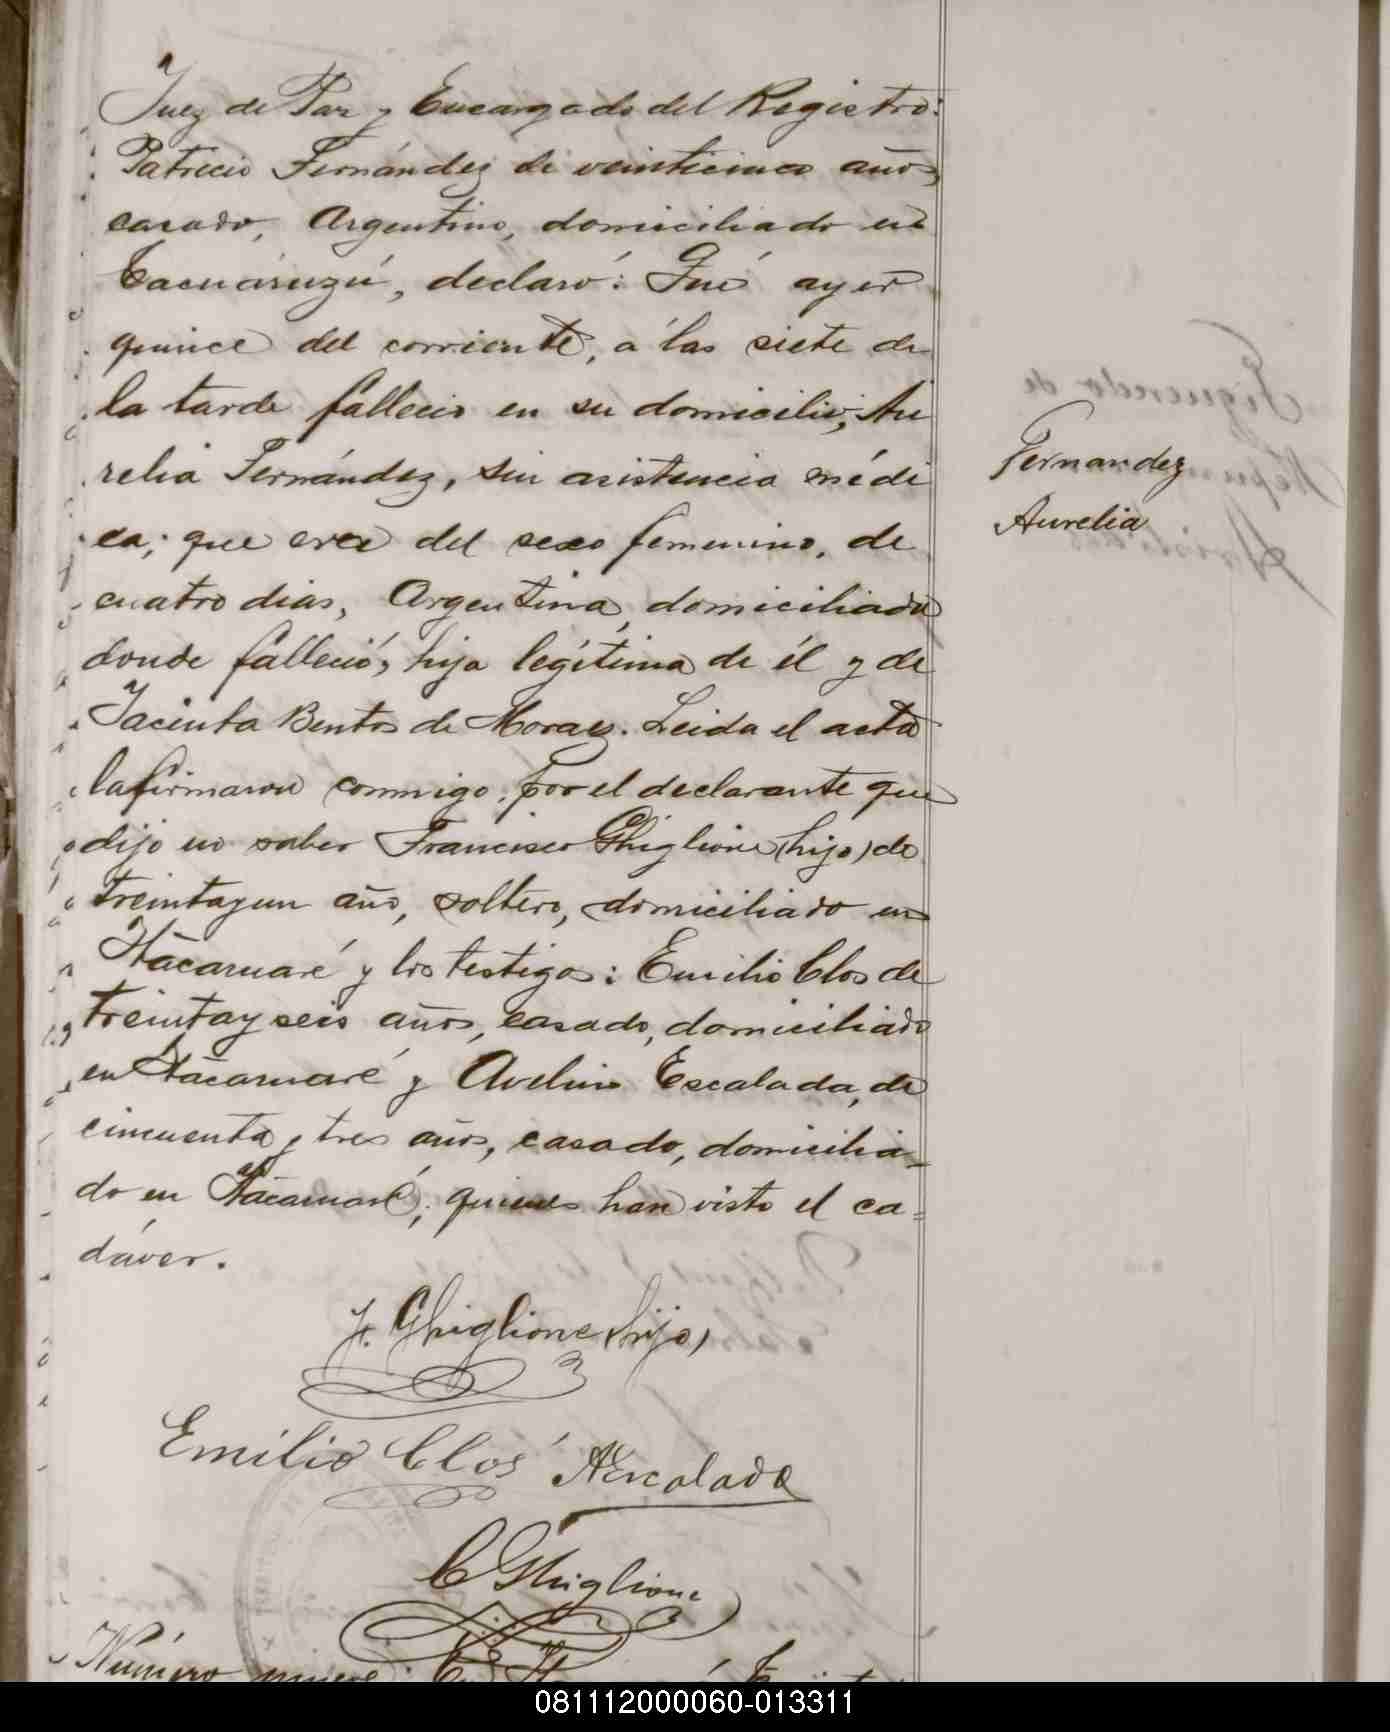 Juez de Paz y Encargado del Registro:
Patricio Fernández de veinticinco años,
casado, Argentino, domiciliado en
Tacuaruzú, declaró: Qué ayer
quince del corriente, a las siete de
la tarde falleció en su domicilio, Au
relia Fernández, sin asistencia médi
ca; que era del sexo femenino, de
cuatro dias, Argentina, domiciliada
donde falleció, hija legítima de él y de
Jacinta Bentos de Moraes. Leida el acta
la firmaron conmigo, por el declarante que
dijo no saber Francisco Ghiglione (hijo) de
treintayun año, soltero, domiciliado en
Itacaruaré y los testigos: Emilio Clos de
treintay seis años, casado, domiciliado
en Itacaruaré y Avelino Escalada, de
cincuenta y tres años, casado, domicilia-
do en Itacaruaré; quienes han visto el ca=
dáver.
Fernandez
Aurelia
F. Ghiglione (hijo)
Emilio Clos AEscalada
C Ghiglione
Número nueve: En
081112000060-013311